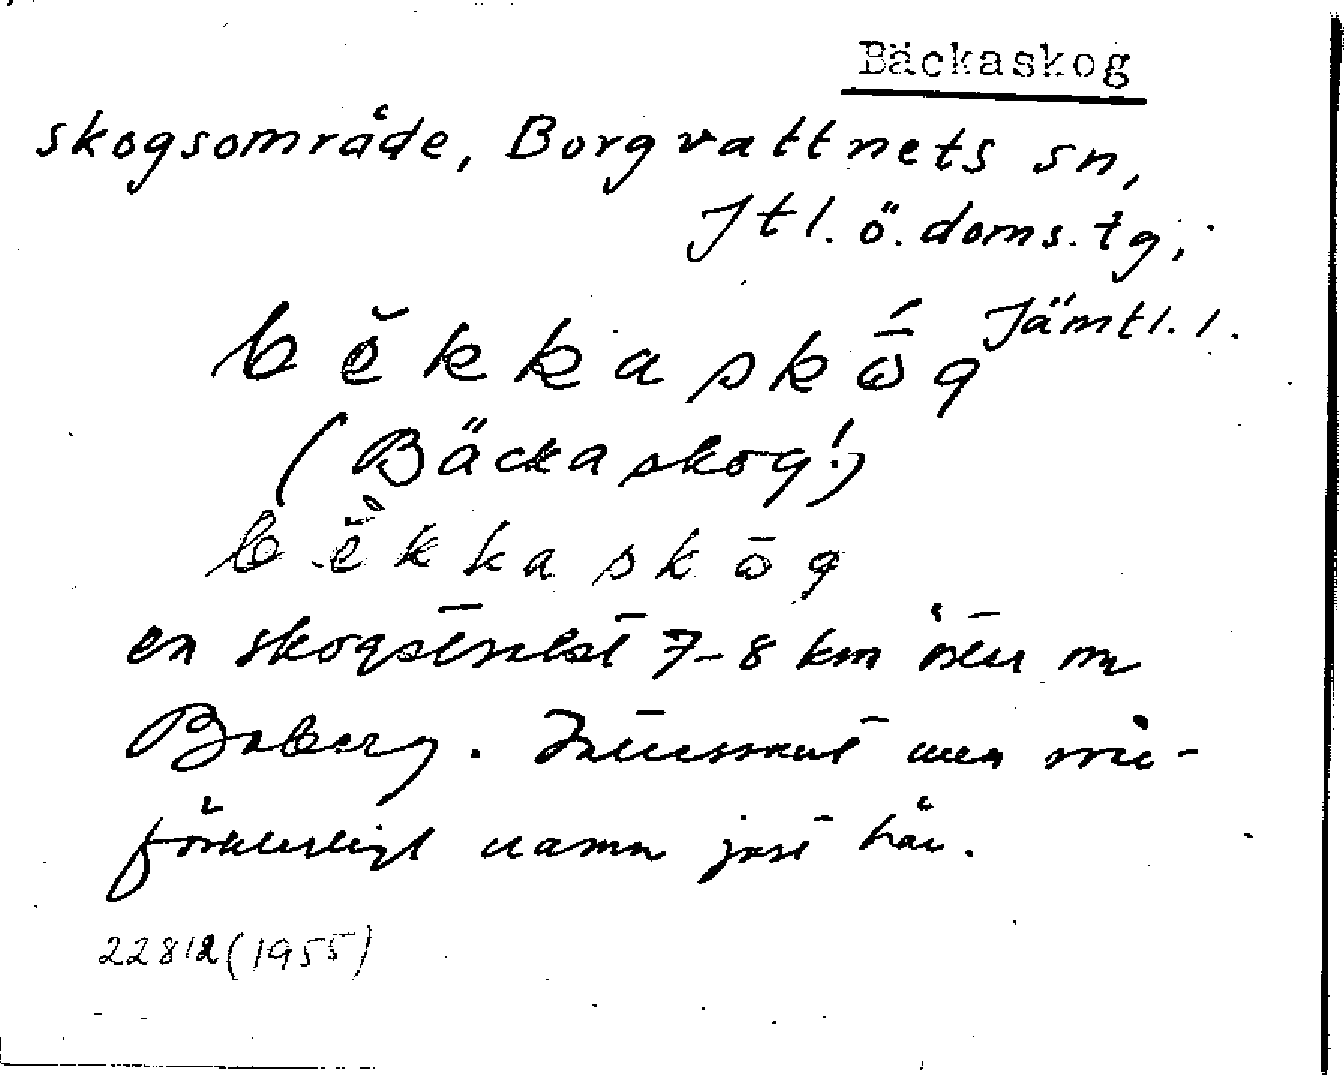 Bäckaskog
skogsområde, Borgvattnets sn,
Jtl. ö. doms. tg,
Jämtl. l.
bĕkkaskṓg
(Bäckaskog!)
bĕ̀kkaskōg
en skogstrakt 7-8 km öster om
Boberg. Intressant men
förklarligt namn just här.
22812 (1955)